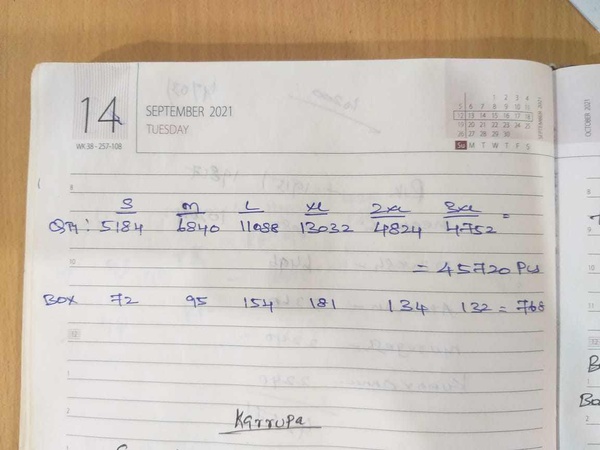 14
SEPTEMBER 2021
TUESDAY
WK 38 - 257-108
1 2 3 4
5 6 7 8 9 10 11
12 13 14 15 16 17 18
19 20 21 22 23 24 25
26 27 28 29 30
Su M T W T F S
SEPTEMBER 2021
OCTOBER 2021
S M L XL 2XL 3XL
QTY: 5184 6840 11088 13032 4824 4752 =
= 45720 Pcs
BOX 72 95 154 181 134 132 = 768
Karrupa